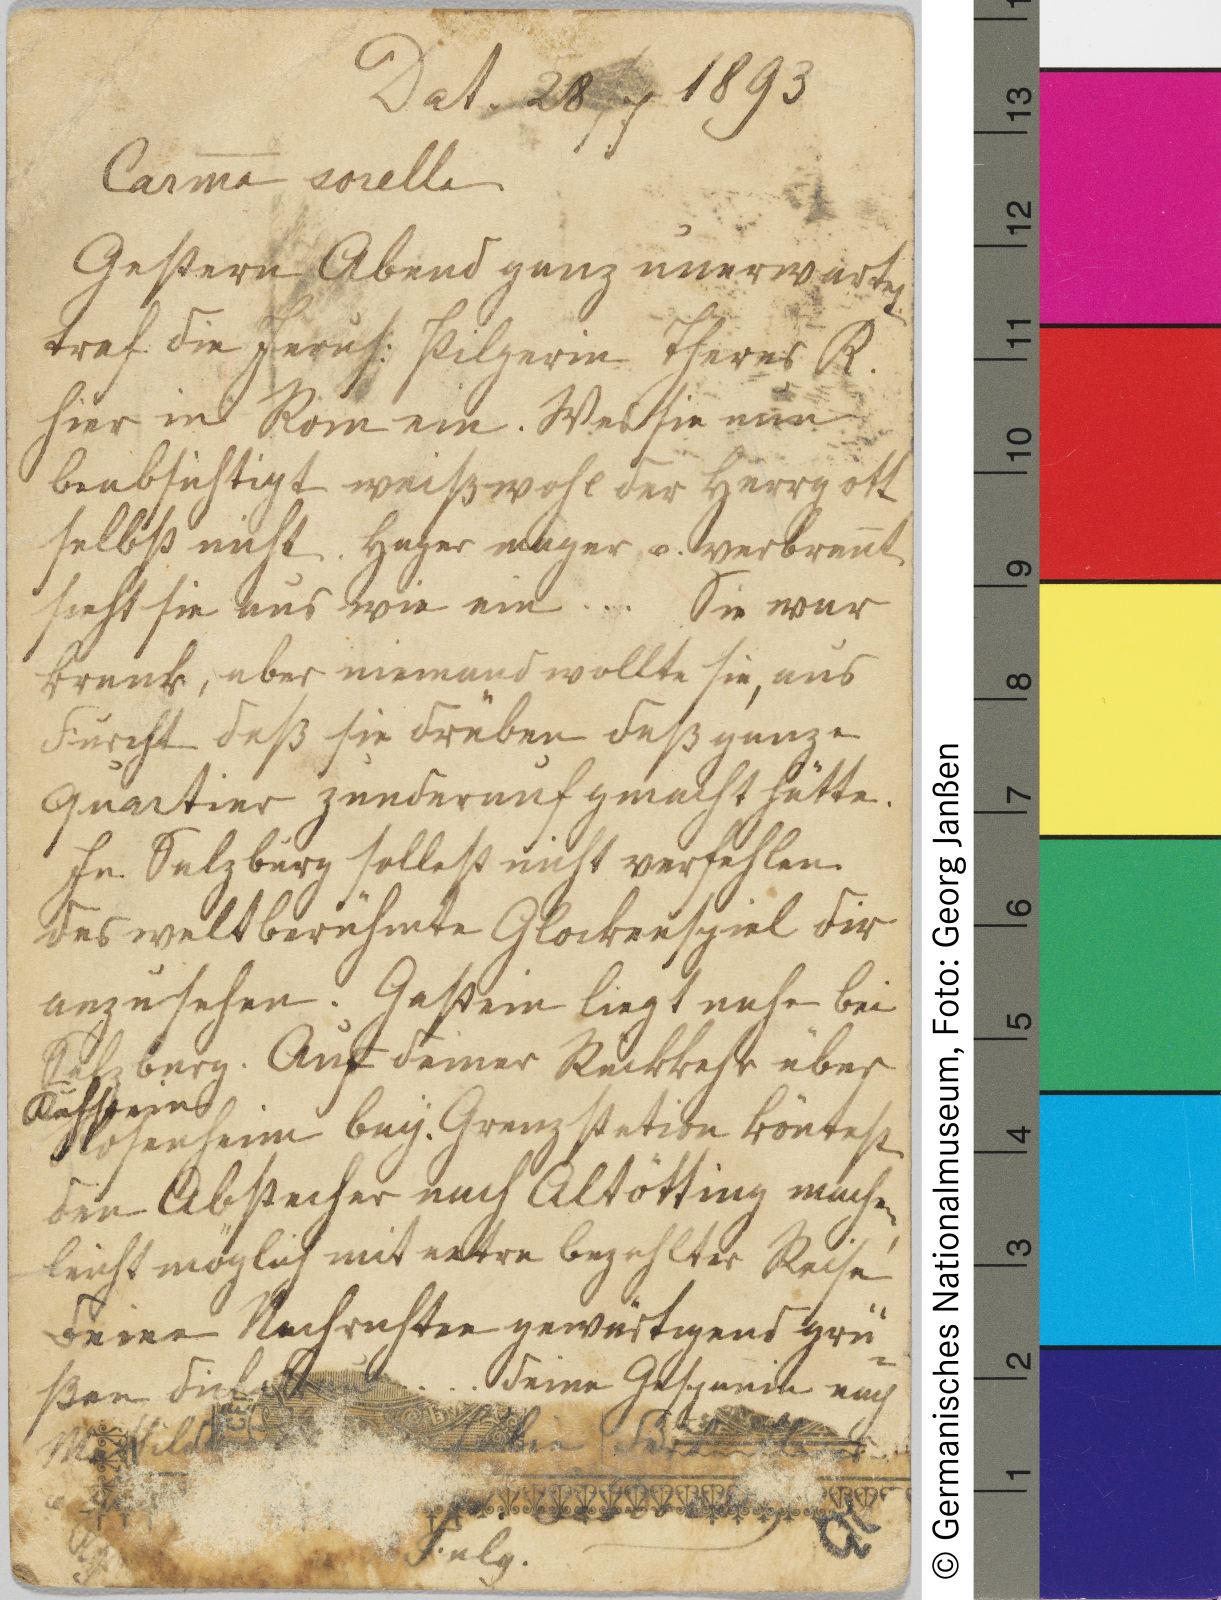 Dat. 28/7 1893
Carma sorella
Gestern Abend ganz unerwartet
traf die Jerus: Pilgerin Theres R.
hier in Rom ein. Was sie nun
beabsichtigt weiß wohl der Herrgott
selbst nicht. Hager mager u. verbrannt
sieht sie aus wie ein .... Sie war
krank, aber niemand wollte sie, aus
Furcht daß sie drüben daß ganze
Quartier zunderauf gmacht hätte.
In Salzburg sollest nicht verfehlen
das weltberühmte Glockenspiel dir
anzusehen. Gastein liegt nahe bei
Salzburg. Auf deiner Rückkehr über
Kufstein
Rosenheim bayr. Grenzstation köntest
den Abstecher nach Altötting machen,
leicht möglich mit extra bezahlter Reise
Deine Nachrichten gewärtigend grü-
ßen dich .... deine Gespanin auch
F. ulg.
© Germanisches Nationalmuseum, Foto: Georg Janßen
13
12
11
10
9
8
7
6
5
4
3
2
1